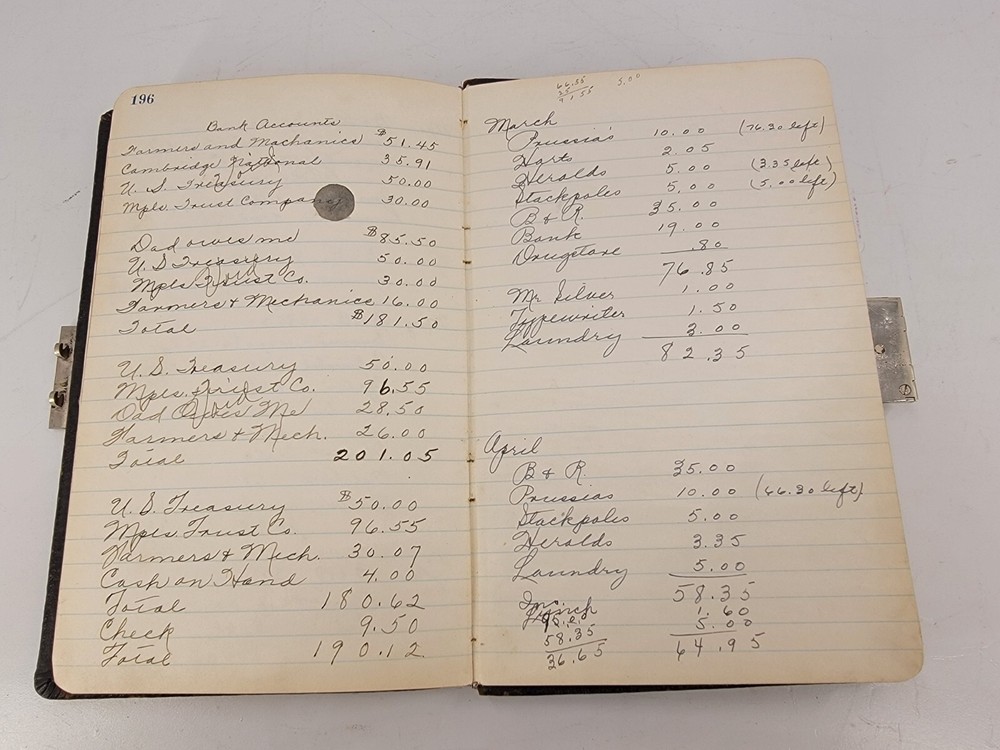 196
Bank Accounts
Farmers and Machanics $51.45
Cambridge National 35.91
U. S. Treasury 50.00
Mpls. Trust Company 30.00
Dad owes me $85.50
U. S Treasurery 50.00
Mpls Trust Co. 30.00
Farmers + Mechanics 16.00
Total $181.50
U. S. Treasury 50.00
Mpls. Trust Co. 96.55
Dad Owes Me 28.50
Farmers + Mech. 26.00
Total 201.05
U. S. Treasury $50.00
Mpls Trust Co. 96.55
Farmers + Mech. 30.07
Cash on Hand 4.00
Total 180.62
Check 9.50
Total 190.12
66.35 5.00
25
91.55
March
Prussia's 10.00 (76.30 left)
Harts 2.05
Heralds 5.00 (3.35 left)
Stackpoles 5.00 (5.00 left)
B & R. 35.00
Bank 19.00
Drugstore .80
76.85
Mr Silver 1.00
Typewriter 1.50
Laundry 3.00
82.35
April
B & R. 35.00
Prussias 10.00 (66.30 left)
Stackpoles 5.00
Heralds 3.35
Laundry 5.00
58.35
Inc. 1.60
Lunch 5.00
58.35 64.95
36.65